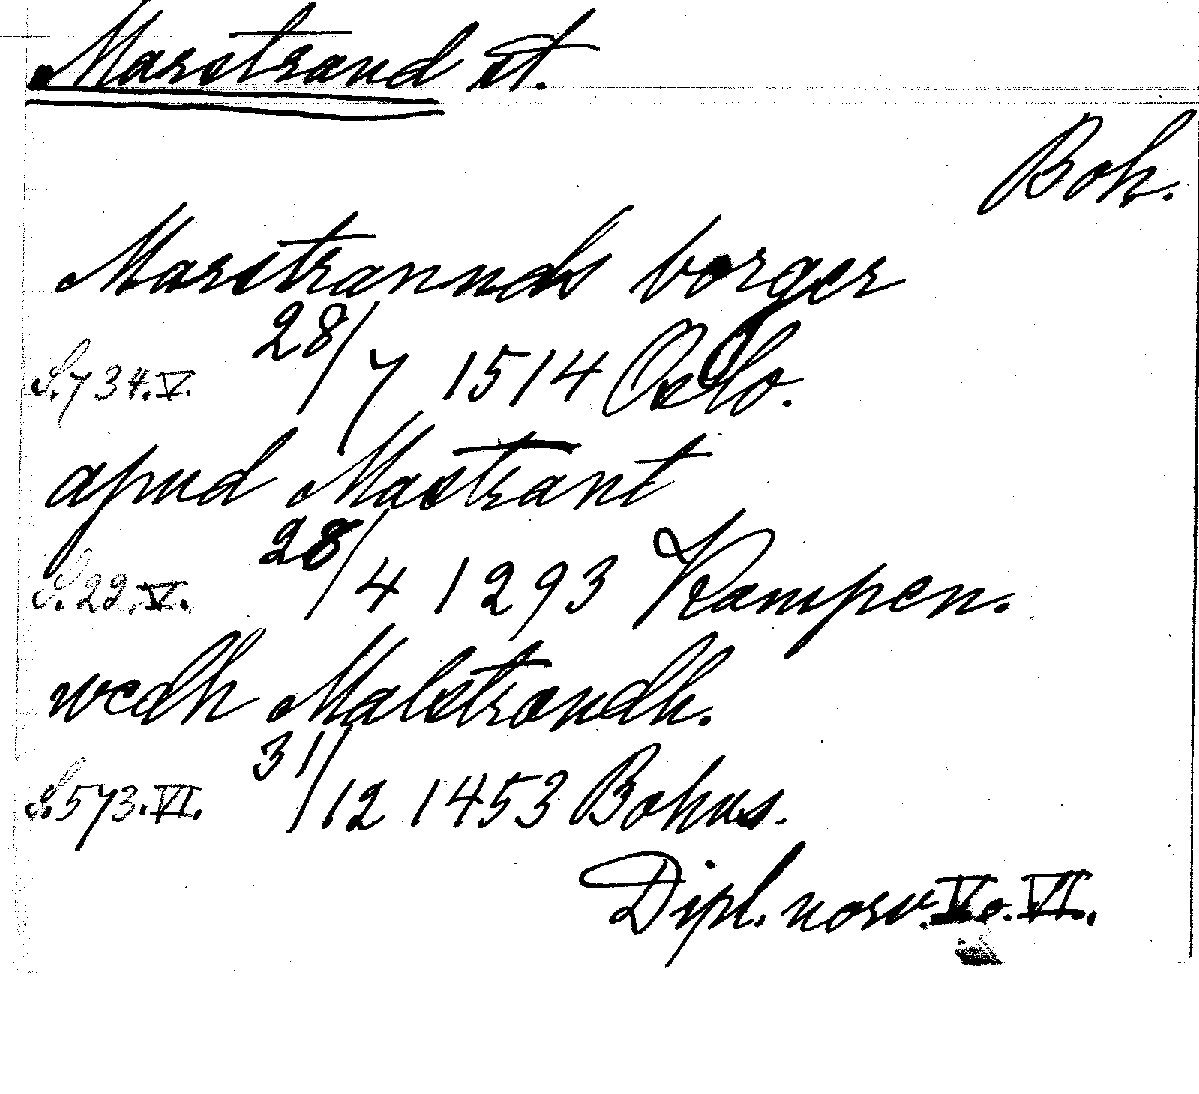 Marstrand st.
Boh.
Marstrannds borger
S. 734. V. 28/7 1514 Oslo.
apud Mastrant
S. 22. V. 28/4 1293 Kampen.
wedh Malstrandh.
S. 573. VI. 31/12 1453 Bohus.
Dipl. norv. V o. VI.